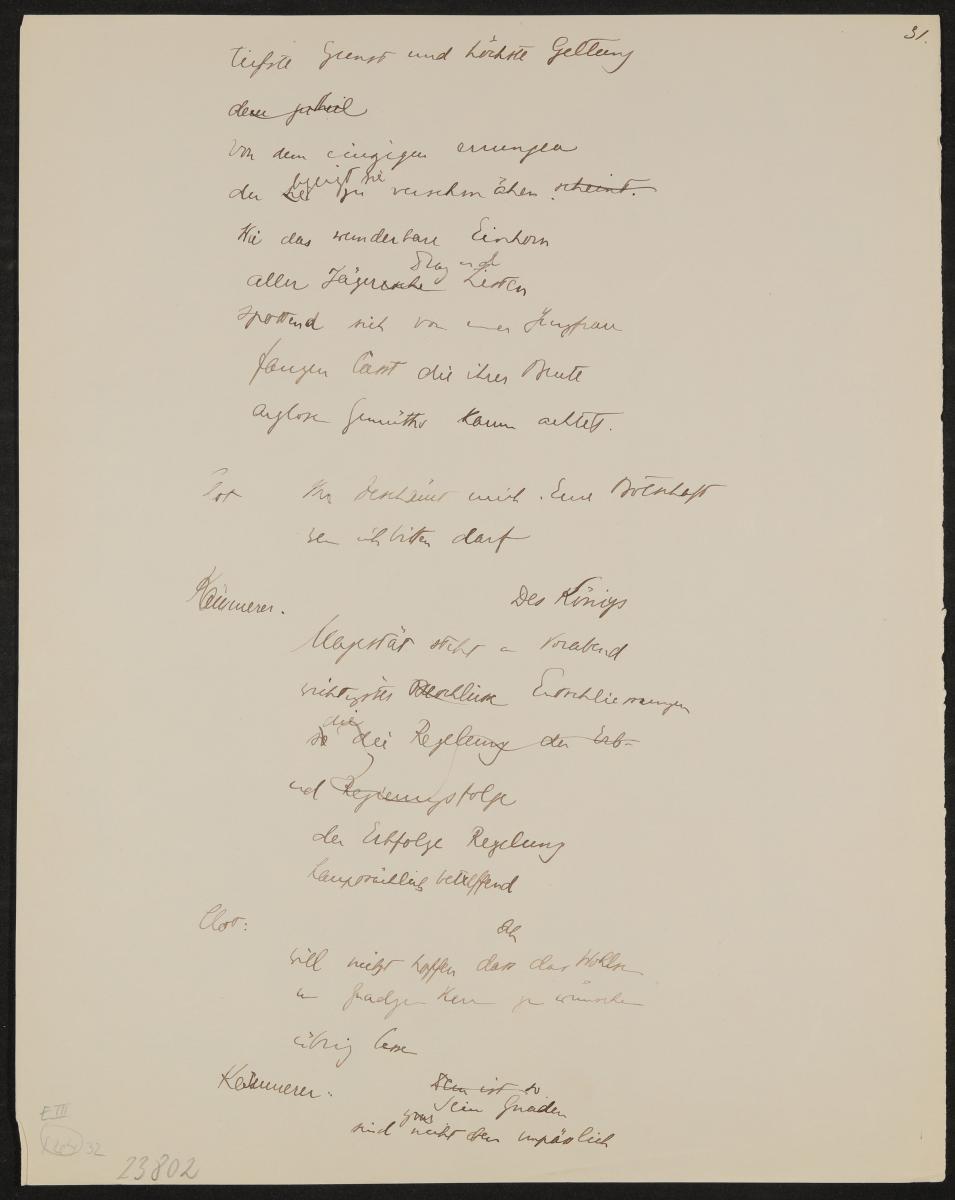 31.
tiefste Gunst und höchste Geltung
dem
Von dem einzigen errungen
bezeigt sie
der zu verschmähen scheint.
Wie das wunderbare Einhorn
und
aller Jäger Listen
spottend sich von einer Jungfrau
fangen lässt die ihrer Beute
arglosen Gemüths kaum achtet.
Ihr beschämt mich. Eure Botschaft
wenn ich bitten darf
Kämmerer. Des Königs
Majestät steht am Vorabend
wichtigster Entschliessungen
die
so die Regelung der Erb-
und Regierungsfolge
der Erbfolge Regelung
hauptsächlich betreffend
Clot: Ich
will nicht hoffen dass das Wohlsein
zu wünschen
übrig lasse
Kämmerer. Dem ist so
Sein Gnaden
sind ganz unpässlich
E III
32
23802